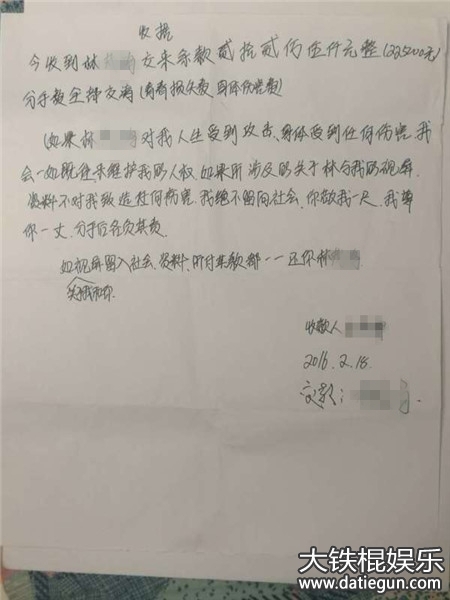 收据
今收到林 女来条款贰拾贰万伍仟元整(225000元)
分手款全部交清(青春损失费 身体伤害费)
(如果林 对我人生受到攻击、身体受到任何伤害,我
会一如既往来维护我的人权.如果所涉及的关于林与我的视屏、
资料不对我致造任何伤害.我绝不留向社会、你敬我一尺、我尊
你一丈,分手后各负其责
如视屏留入社会、资料、所付条款都一一还你林
关于我和你
收款人
2016.2.18.
交款:
大铁棍娱乐
www.datiegun.com